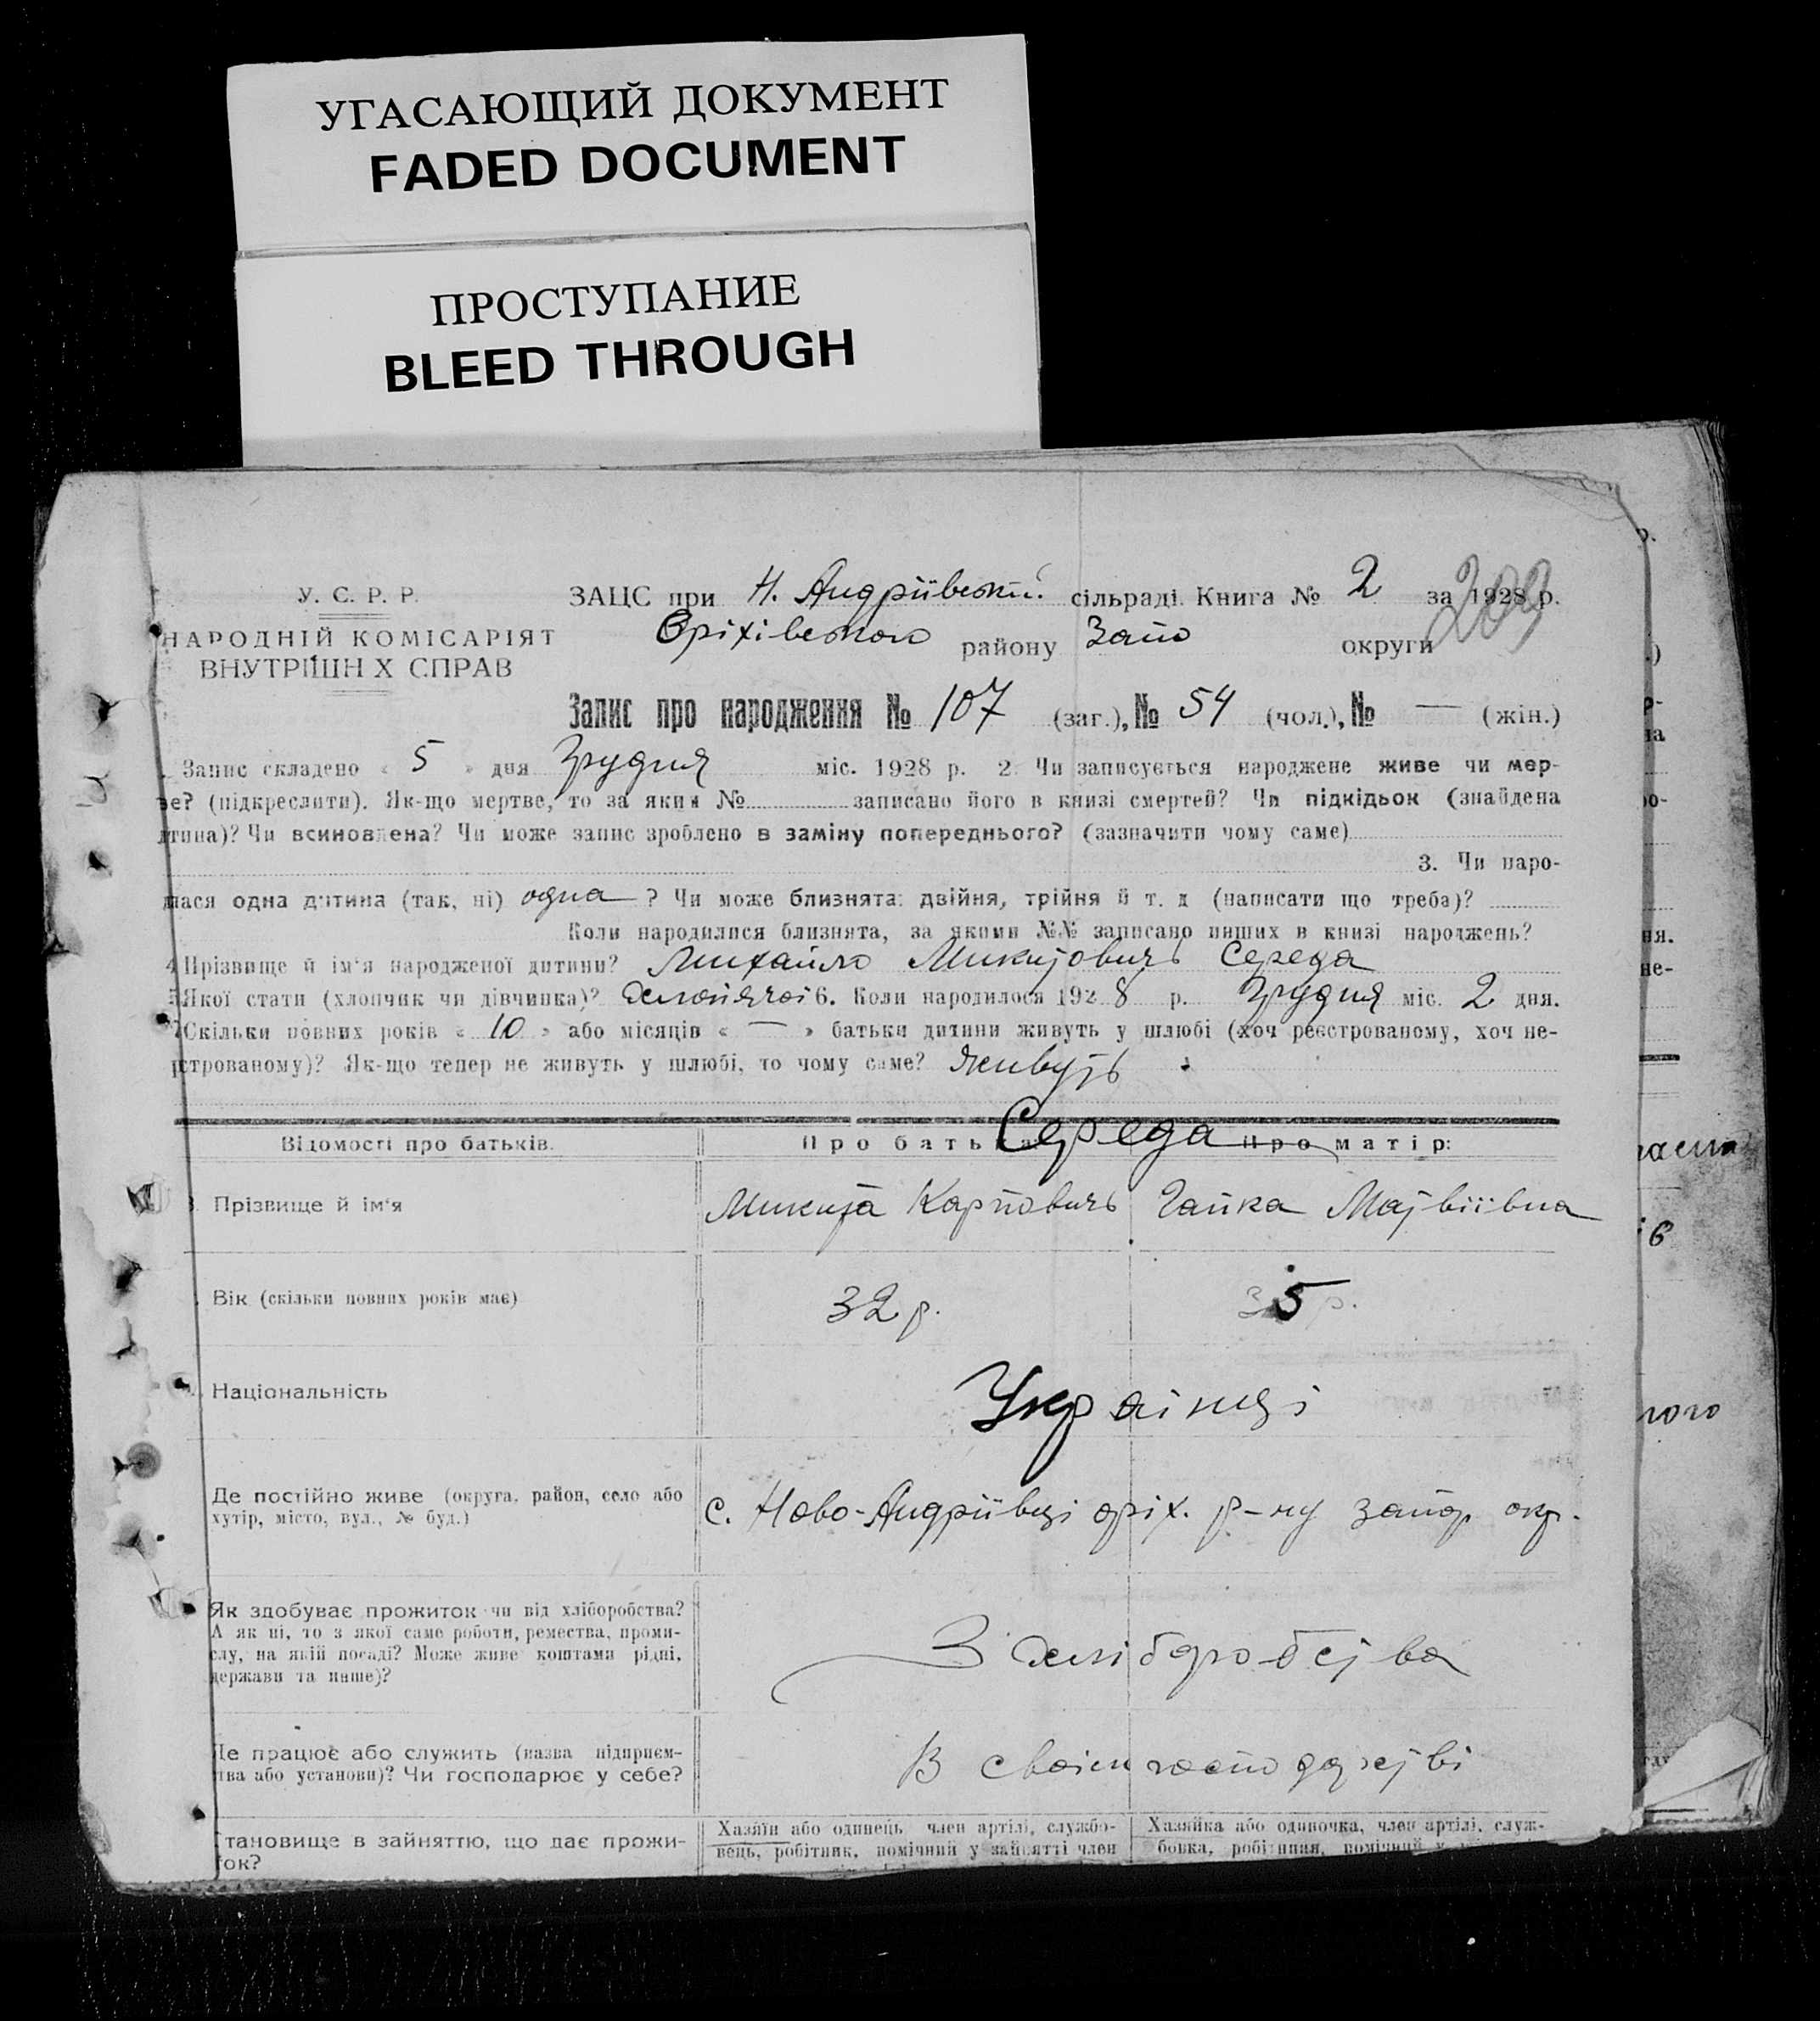 УГАСАЮЩИЙ ДОКУМЕНТ
FADED DOCUMENT
ПРОСТУПАНИЕ
BLEED THROUGH
У. С. Р. Р.
НАРОДНІЙ КОМІСАРІЯТ
ВНУТРІШН Х СПРАВ
ЗАЦС при Н. Андріївській сільраді. Книга № 2 за 1928 р.
209
Оріхівського району Запо округи
Запис про народження № 107 (заг.), № 54 (чол.), № — (жін.)
Запис складено « 5 » дня Грудня міс. 1928 р. 2. Чи записується народжене живе чи мер-
ве? (підкреслити). Як-що мертве, то за яким № записано його в книзі смертей? Чи підкідьок (знайдена
дтина)? Чи всиновлена? Чи може запис зроблено в заміну попереднього? (зазначити чому саме)
3. Чи наро-
лася одна дитина (так, ні) одна ? Чи може близнята: двійня, трійня й т. д (написати що треба)?
Коли народилися близнята, за якими №№ записано инших в книзі народжень?
4 Прізвище й ім'я народженої дитини? Михайло Микитовичь Середа
5 Якої стати (хлопчик чи дівчинка)? Хлопячої 6. Коли народилося 1928 р. Грудня міс. 2 дня.
7 Скільки повних років « 10 » або місяців « — » батьки дитини живуть у шлюбі (хоч реєстрованому, хоч не-
єстрованому)? Як-що тепер не живуть у шлюбі, то чому саме? Живуть
Відомості про батьків. Про батька Про матір:
Середа
Прізвище й ім'я Микита Карповичь Ганка Матвіївна
Вік (скільки повних років має) 32 р. 35 р.
Національність Українці
Де постійно живе (округа, район, село або
хутір, місто, вул., № буд.) с. Ново-Андріївці оріх. р-ну запор. окр.
Як здобуває прожиток чи від хліборобства?
А як ні, то з якої саме роботи, ремества, проми-
слу, на якій посаді? Може живе коштами рідні,
держави та инше)?
З хліборобства
Де працює або служить (назва підприєм-
тва або установи)? Чи господарює у себе?
В своїм господарстві
тановище в зайняттю, що дає прожи-
ток?
Хазяїн або одинець, член артілі, службо-
вець, робітник, помічний у зайнятті член
Хазяйка або одиночка, член артілі, служ-
бовка, робітниця, помічний у